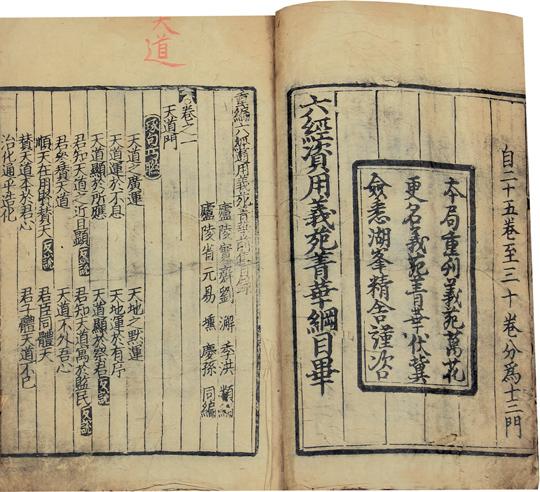 自二十五卷至三十卷分為十二門
本局重刊義苑萬花
更名義苑菁華伏冀
僉悉湖峯精舍謹咨
六經資用義苑菁華綱目畢
天道
重編六經資用義苑菁華前集目錄
廬陵實齋劉瀣季洪類編
廬陵省元易壎慶孫同編
卷之一
天道門
天道之廣運
天地之默運
天道運於不息
天地運於有序
天道顯於所應
天道顯於祭君反說
君知天道之近且顯反說
君知天道寓於監民反說
君參贊天道
天道不外吾心
順天在用賢贊天反說
君臣同體天
贊天道本於君心
君子體天道不已
治化通乎造化